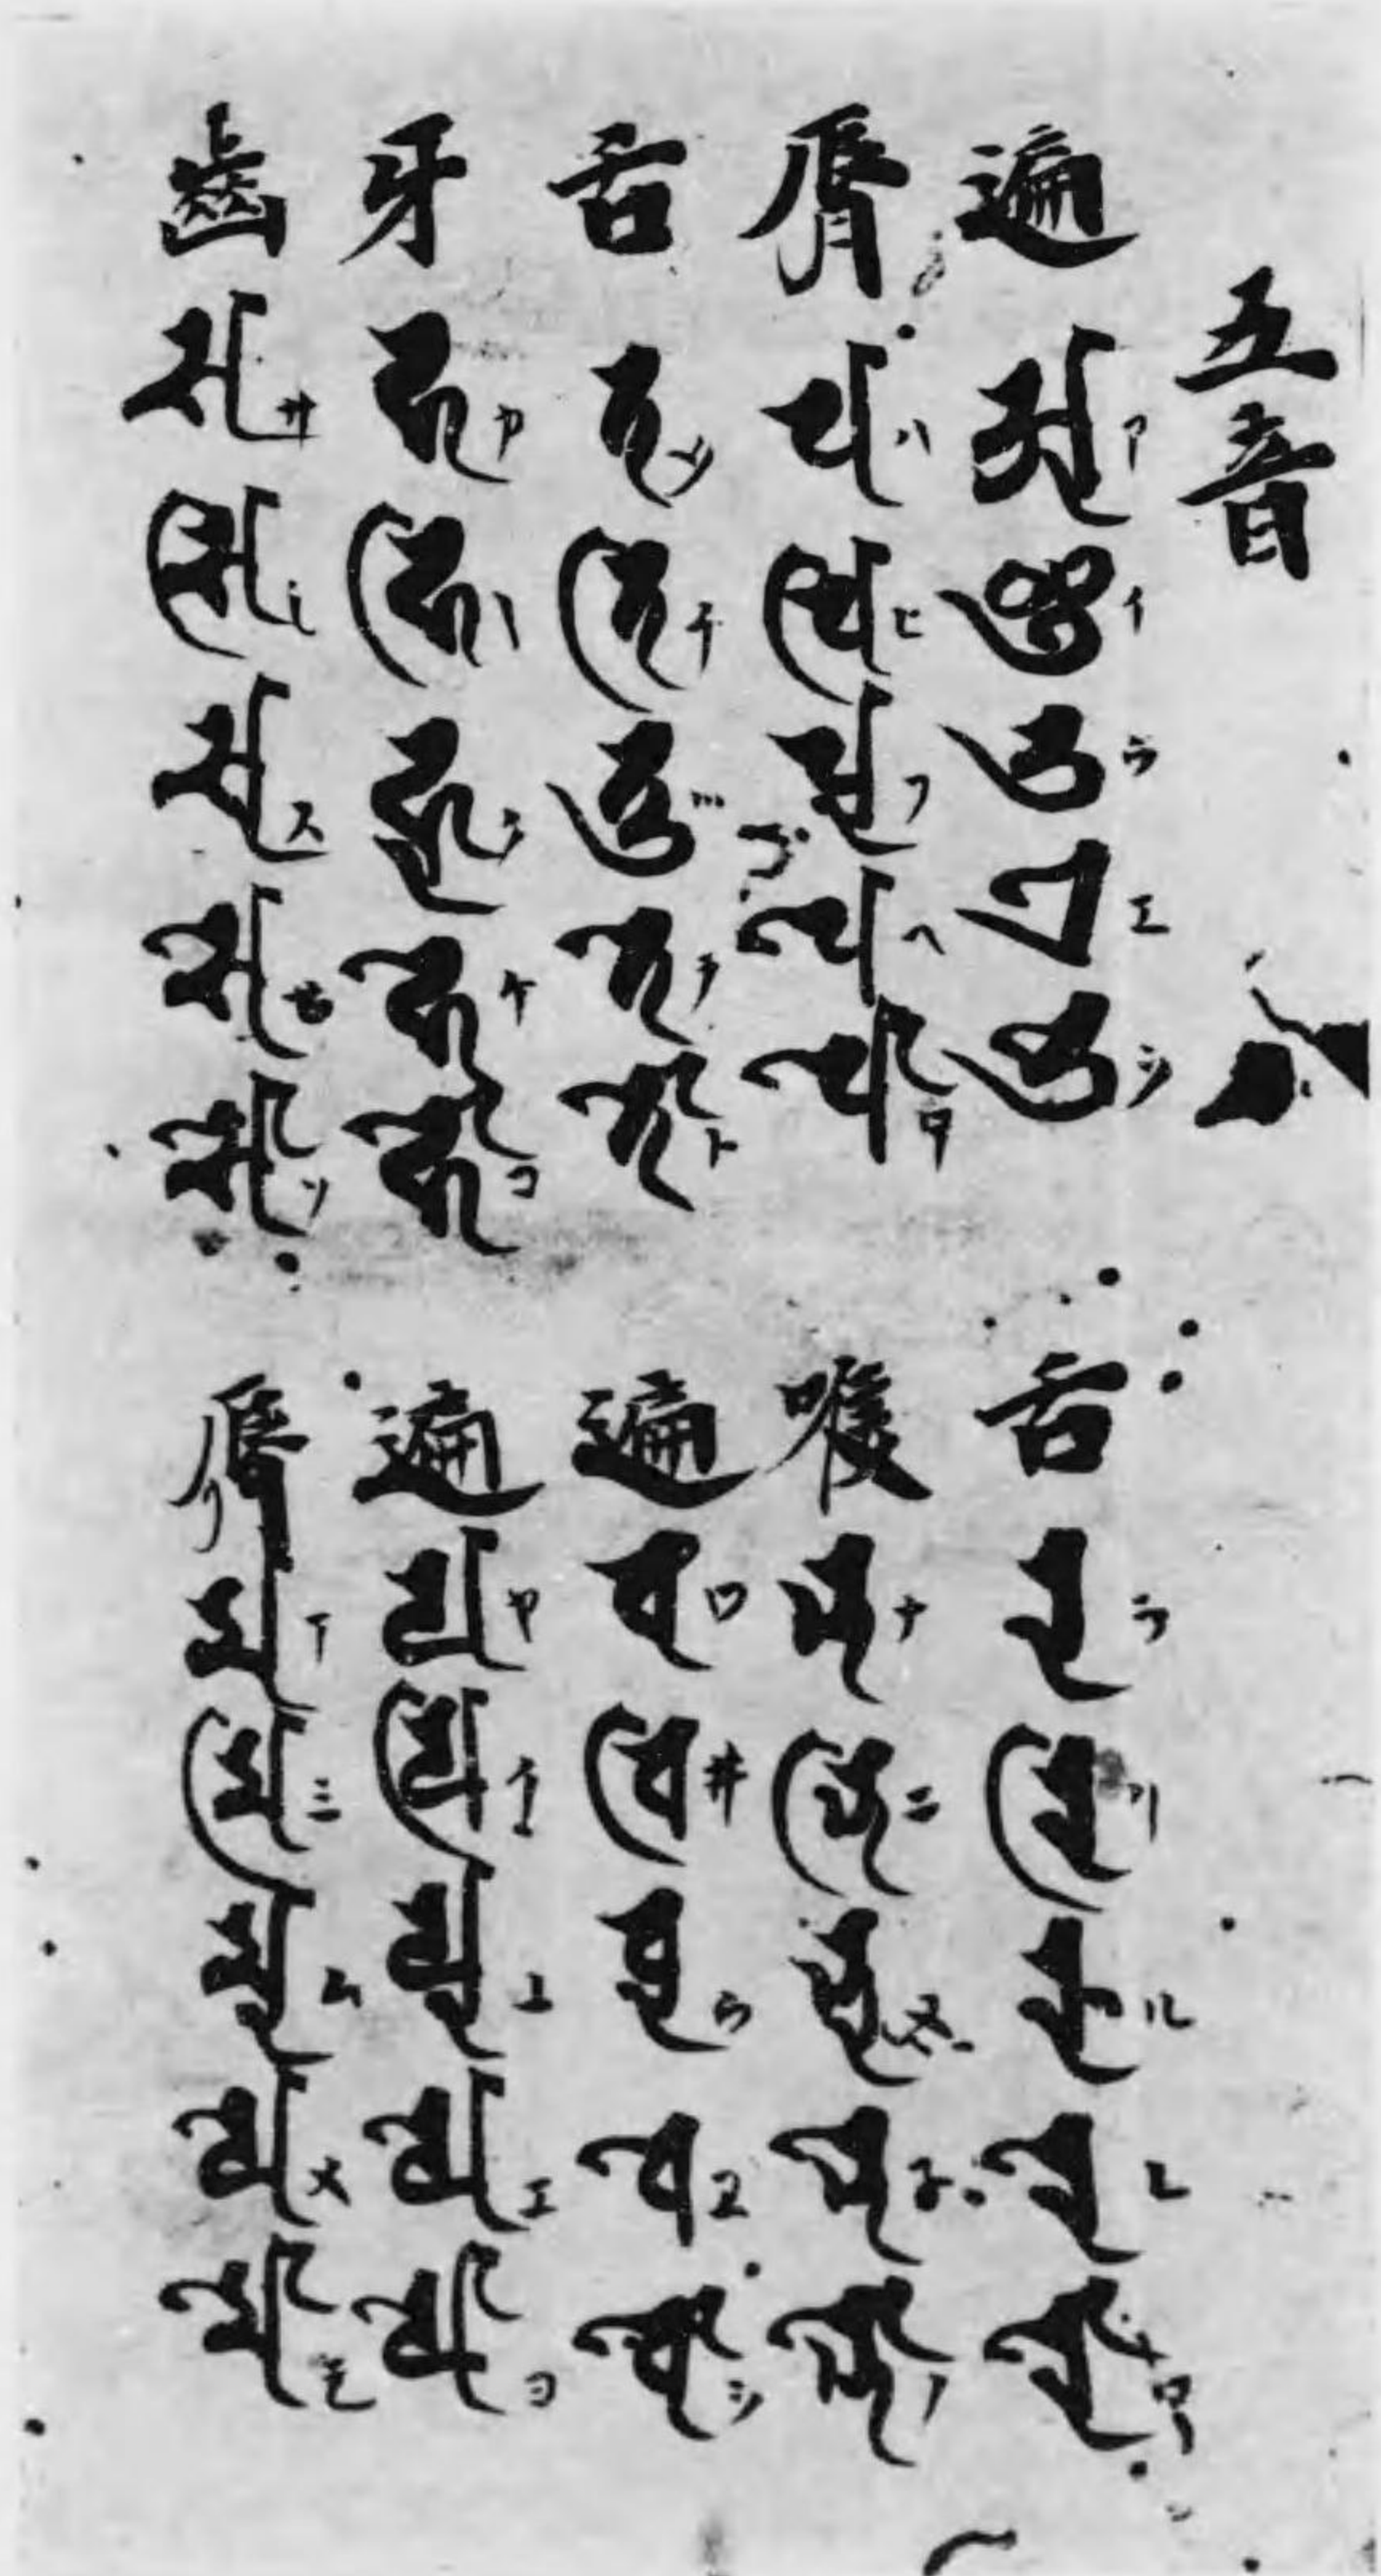 五音
遍 𑖀ア 𑖂イ 𑖄ウ 𑖊エ 𑖌ヲ
脣 𑖢ハ 𑖢𑖰ヒ 𑖢𑖲フ 𑖢𑖸ヘ 𑖢𑖺
舌 𑖝タ 𑖝𑖰チ 𑖝𑖲ツ 𑖝𑖸テ 𑖝𑖺ト
牙 𑖎カ 𑖎𑖰 𑖎𑖲ク 𑖎𑖸ケ 𑖎𑖺コ
齒 𑖭サ 𑖭𑖰シ 𑖭𑖲ス 𑖭𑖸セ 𑖭𑖺ソ
舌 𑖨ラ 𑖨𑖰リ 𑖨𑖲ル 𑖨𑖸レ 𑖨𑖺ロ
喉 𑖡ナ 𑖡𑖰ニ 𑖡𑖲ヌ 𑖡𑖸 𑖡𑖺ノ
遍 𑖪ワ 𑖪𑖰井 𑖪𑖲ウ 𑖪𑖸ヱ 𑖪𑖺ヲ
遍 𑖧ヤ 𑖧𑖰イ 𑖧𑖲ユ 𑖧𑖸エ 𑖧𑖺ヨ
脣 𑖦マ 𑖦𑖰ミ 𑖦𑖲ム 𑖦𑖸メ 𑖦𑖺モ